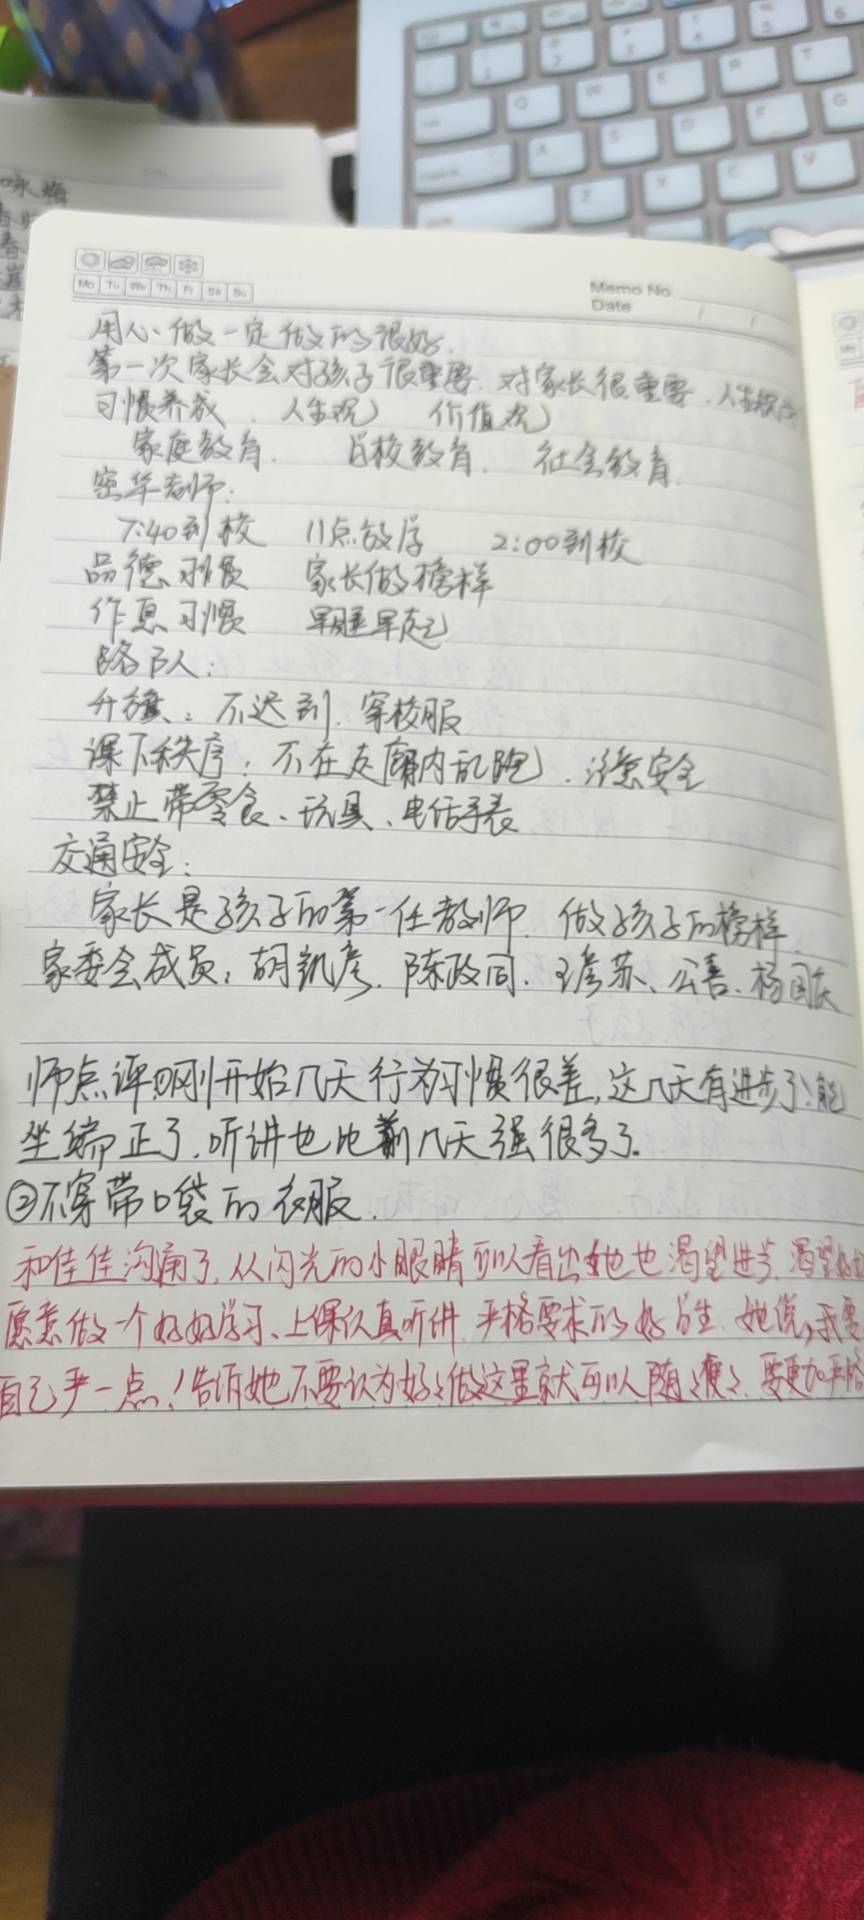 咏梅
Mo Tu We Th Fr Sa Su
Memo No.
Date / /
用心、做一定做的很好.
第一次家长会对孩子很重要.对家长很重要.人生
习惯养成.人生观 价值观
家庭教育. 学校教育. 社会教育.
老师:
7:40到校 11点放学 2:00到校
品德习惯 家长做榜样
作息习惯 早睡早起
路队:
升旗:不迟到.穿校服
课下秩序:不在走廊内乱跑.注意安全
禁止带零食、玩具、电话手表
交通安全:
家长是孩子的第一任教师.做孩子的榜样.
家委会成员:胡凯彦.陈政同.
师点评:①刚开始几天行为习惯很差,这几天有进步了:能
坐端正了.听讲也比前几天强很多了.
②不穿带口袋的衣服.
和佳佳沟通了.从闪光的小眼睛可以看出她也渴望进步.渴望
愿意做一个好好学习、上课认真听讲.严格要求的好学生.她说,我要
自己严一点!告诉她不要认为好好做这里就可以随便.要更加严格